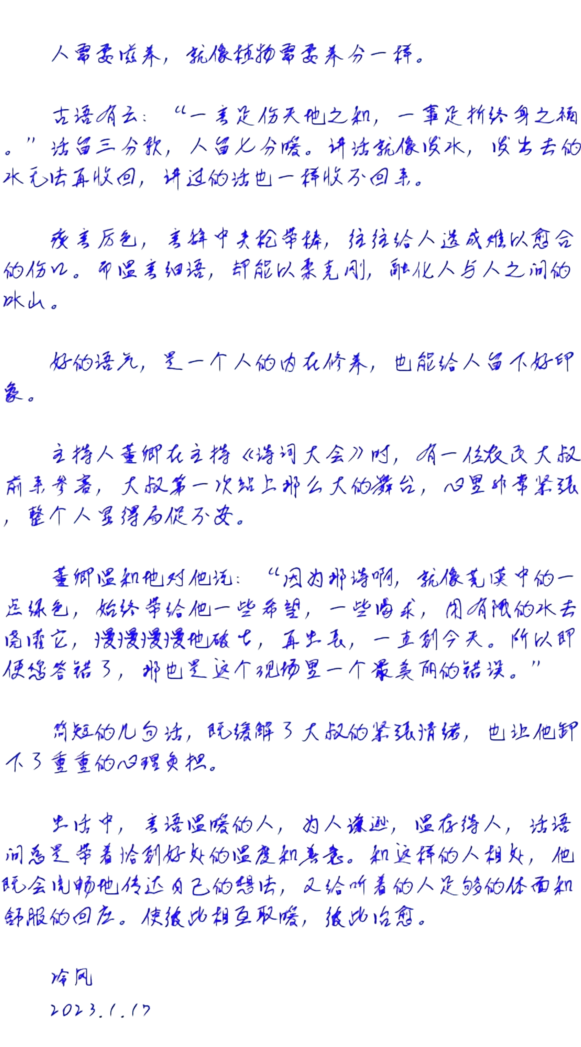 人需要滋养，就像植物需要养分一样。
古语有云：“一言足伤天地之和，一事足折终身之福
。”话留三分软，人留七分暖。讲话就像泼水，泼出去的
水无法再收回，讲过的话也一样收不回来。
疾言厉色，言辞中夹枪带棒，往往给人造成难以愈合
的伤口。而温言细语，却能以柔克刚，融化人与人之间的
冰山。
好的语气，是一个人的内在修养，也能给人留下好印
象。
主持人董卿在主持《诗词大会》时，有一位农民大叔
前来参赛，大叔第一次站上那么大的舞台，心里非常紧张
，整个人显得局促不安。
董卿温和地对他说：“因为那诗啊，就像荒漠中的一
点绿色，始终带给他一些希望，一些渴求，用有限的水去
浇灌它，慢慢慢慢地破土，再生长，一直到今天。所以即
便您答错了，那也是这个现场里一个最美丽的错误。”
简短的几句话，既缓解了大叔的紧张情绪，也让他卸
下了重重的心理负担。
生活中，言语温暖的人，为人谦逊，温存待人，话语
间总是带着恰到好处的温度和善意。和这样的人相处，他
既会流畅地传达自己的想法，又给听着的人足够的体面和
舒服的回应。使彼此相互取暖，彼此治愈。
冷风
2023.1.17